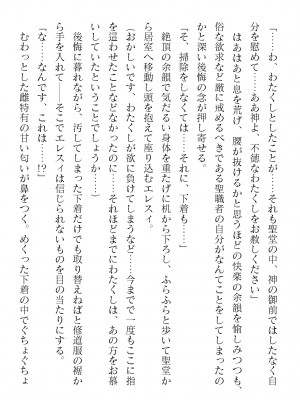 「……わ、わたくしとしたことが……それも聖堂の中、神の御前ではしたなく自
分を慰めて……ああ神よ、不徳なわたくしをお赦しください」
はあはあと息を荒げ、腰が抜けるかと思うほどの快楽の余韻を愉しみつつも、
俗的な欲求など厳に戒めるべきである聖職者の自分がなんてことをしてしまったの
かと深い後悔の念が押し寄せる。
「そ、掃除をしなくては……それに、下着も……」
絶頂の余韻で気だるい身体を重たげに机から下ろし、ふらふらと歩いて聖堂か
ら居室へ移動し頭を抱えて座り込むエレスィ。
「おかしいです、わたくしが欲に負けてしまうなど……今までで一度もここに指
を這わせたことなどなかったのに……それほどまでにわたくしは、あの方をお慕
いしていたということでしょうか……」
後悔に暮れながら、汚してしまった下着だけでも取り替えねばと修道服の裾か
ら手を入れて――そこでエレスィは信じられないものを目の当たりにする。
「な……なんです、これは……!?」
むわっとした雌特有の甘い匂いが鼻をつく。めくった下着の中でぐちょぐちょ